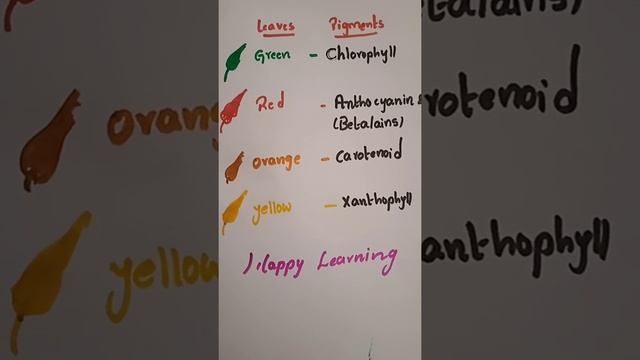 Leaves Pigments
Green - Chlorophyll
Red - Anthocyanin &
(Betalains)
orange - Carotenoid
yellow - Xanthophyll
Happy Learning